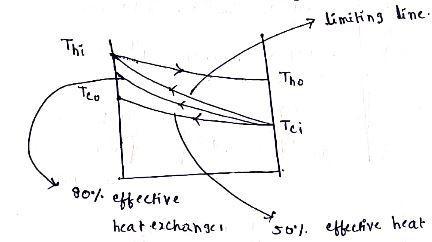 limiting line.
Thi
Tho
Tco
Tci
80% effective
heat exchanger
50% effective heat